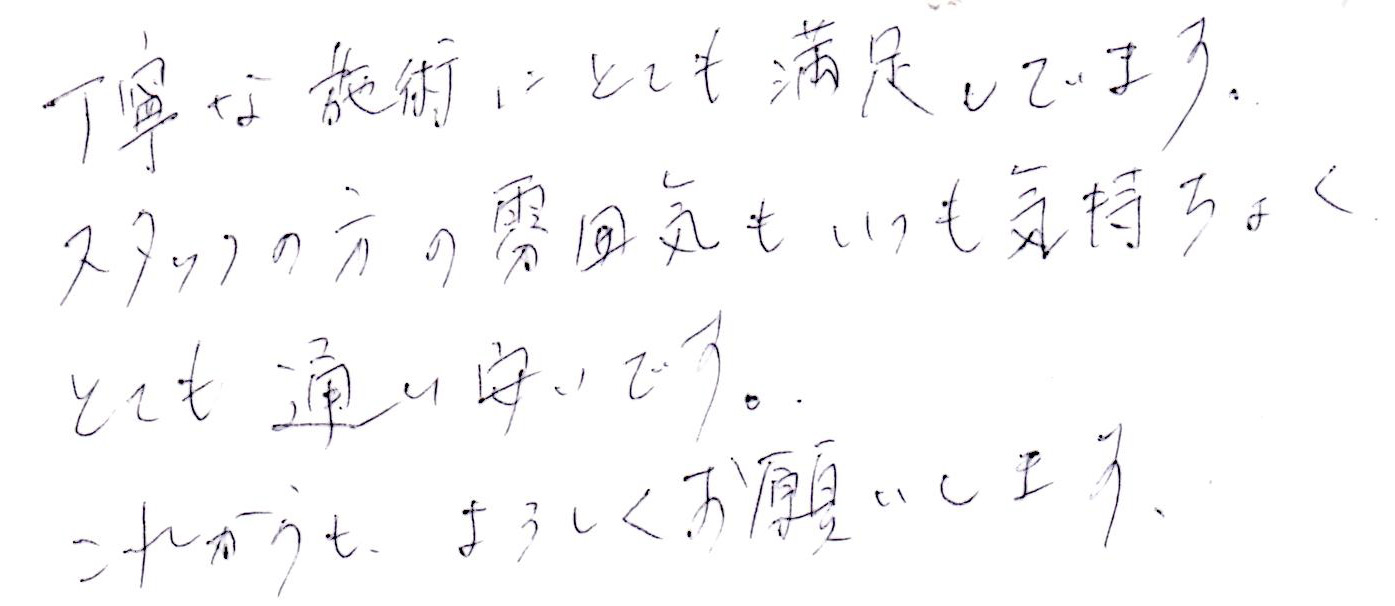 丁寧な施術にとても満足しています。
スタッフの方の雰囲気もいつも気持ちよく
とても通い安いです。
これからも、よろしくお願いします。